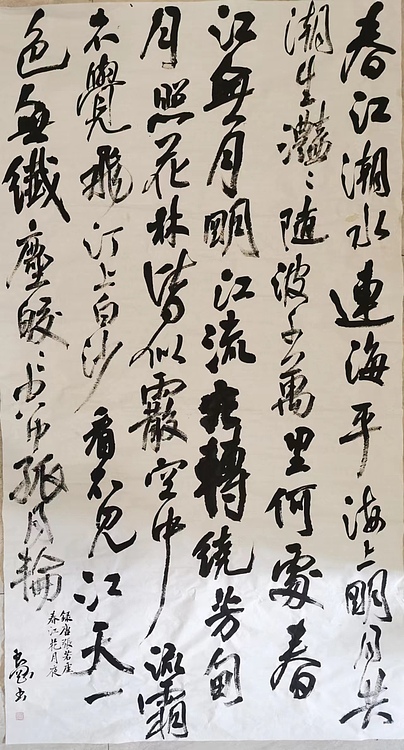 春江潮水連海平海上明月共
潮生灩〻随波千萬里何處春
江無月明江流宛轉繞芳甸
月照花林皆似霰空中流霜
不覺飛汀上白沙看不見江天一
色無纖塵皎〻空中孤月輪
錄唐張若虛
春江花月夜
書